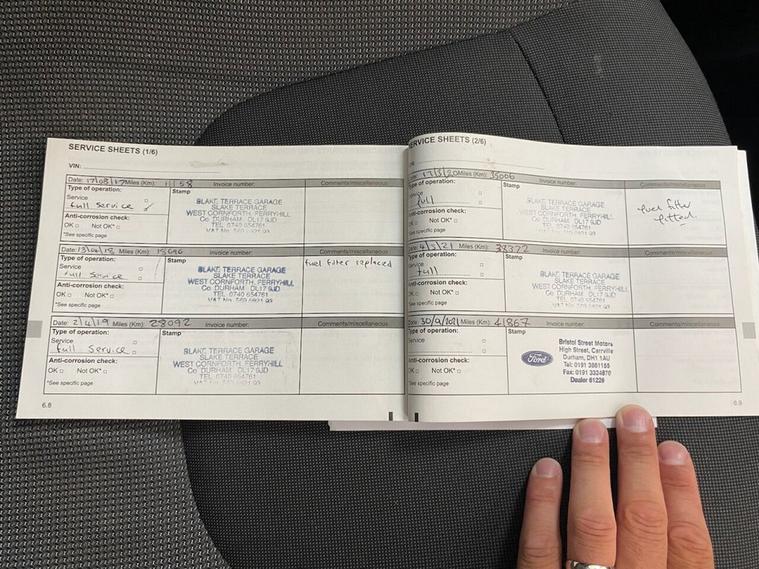 SERVICE SHEETS (1/6)
VIN:
Date: 17/08/17 Miles (Km): 1158 Invoice number: Comments/miscellaneous
Type of operation: Stamp
Service
full Service
Anti-corrosion check:
OK Not OK*
*See specific page
BLAKE TERRACE GARAGE
SLAKE TERRACE
WEST CORNFORTH, FERRYHILL
Co DURHAM DL17 9JD
TEL: 0740 654761
Date: Miles (Km): Invoice number: Comments/miscellaneous
Type of operation: Stamp
Service
full Service
Anti-corrosion check:
OK Not OK*
*See specific page
BLAKE TERRACE GARAGE
SLAKE TERRACE
WEST CORNFORTH, FERRYHILL
Co DURHAM DL17 9JD
TEL: 0740 654761
fuel filter replaced
Date: 2/4/19 Miles (Km): 28092 Invoice number: Comments/miscellaneous
Type of operation: Stamp
Service
full Service
Anti-corrosion check:
OK Not OK*
*See specific page
BLAKE TERRACE GARAGE
SLAKE TERRACE
WEST CORNFORTH, FERRYHILL
Co DURHAM DL17 9JD
TEL: 0740 654761
6.8
SERVICE SHEETS (2/6)
Date: 17/3/20 Miles (Km): 35006 Invoice number: Comments/miscellaneous
Type of operation: Stamp
Service
full
Anti-corrosion check:
OK Not OK*
*See specific page
BLAKE TERRACE GARAGE
SLAKE TERRACE
WEST CORNFORTH, FERRYHILL
Co DURHAM DL17 9JD
TEL: 0740 654761
fuel filter
fitted.
Date: 4/3/21 Miles (Km): Invoice number: Comments/miscellaneous
Type of operation: Stamp
Service
full
Anti-corrosion check:
OK Not OK*
*See specific page
BLAKE TERRACE GARAGE
SLAKE TERRACE
WEST CORNFORTH, FERRYHILL
Co DURHAM DL17 9JD
TEL: 0740 654761
Date: 30/9/2021 Miles (Km): 41867 Invoice number: Comments/miscellaneous
Type of operation: Stamp
Service
Anti-corrosion check:
OK Not OK*
*See specific page
Ford
Bristol Street Motors
High Street, Carrville
Durham, DH1 1AU
Tel: 0191 3861155
Fax: 0191 3324870
Dealer 61226
6.9